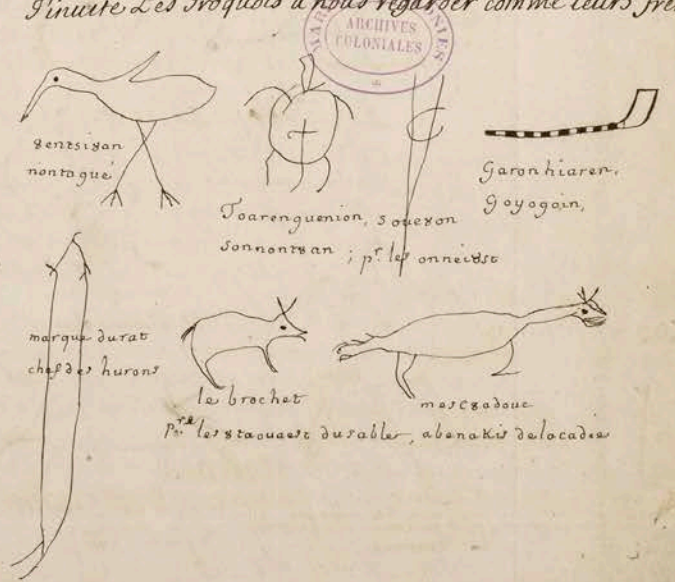 J'inuite Les Iroquois a nous regarder comme leurs
MAR
NIES
ARCHIVES
COLONIALES
8entsi8an
nontagué
Toarenguenion,
sonnont8an ;
so8eson
pr. les onnei8st
Garonhiaren,
Goyogoin,
marque du rat
chef des hurons
le brochet
mesc8adouc
pr. les 8taouaest du sable, abenakis de lacadie